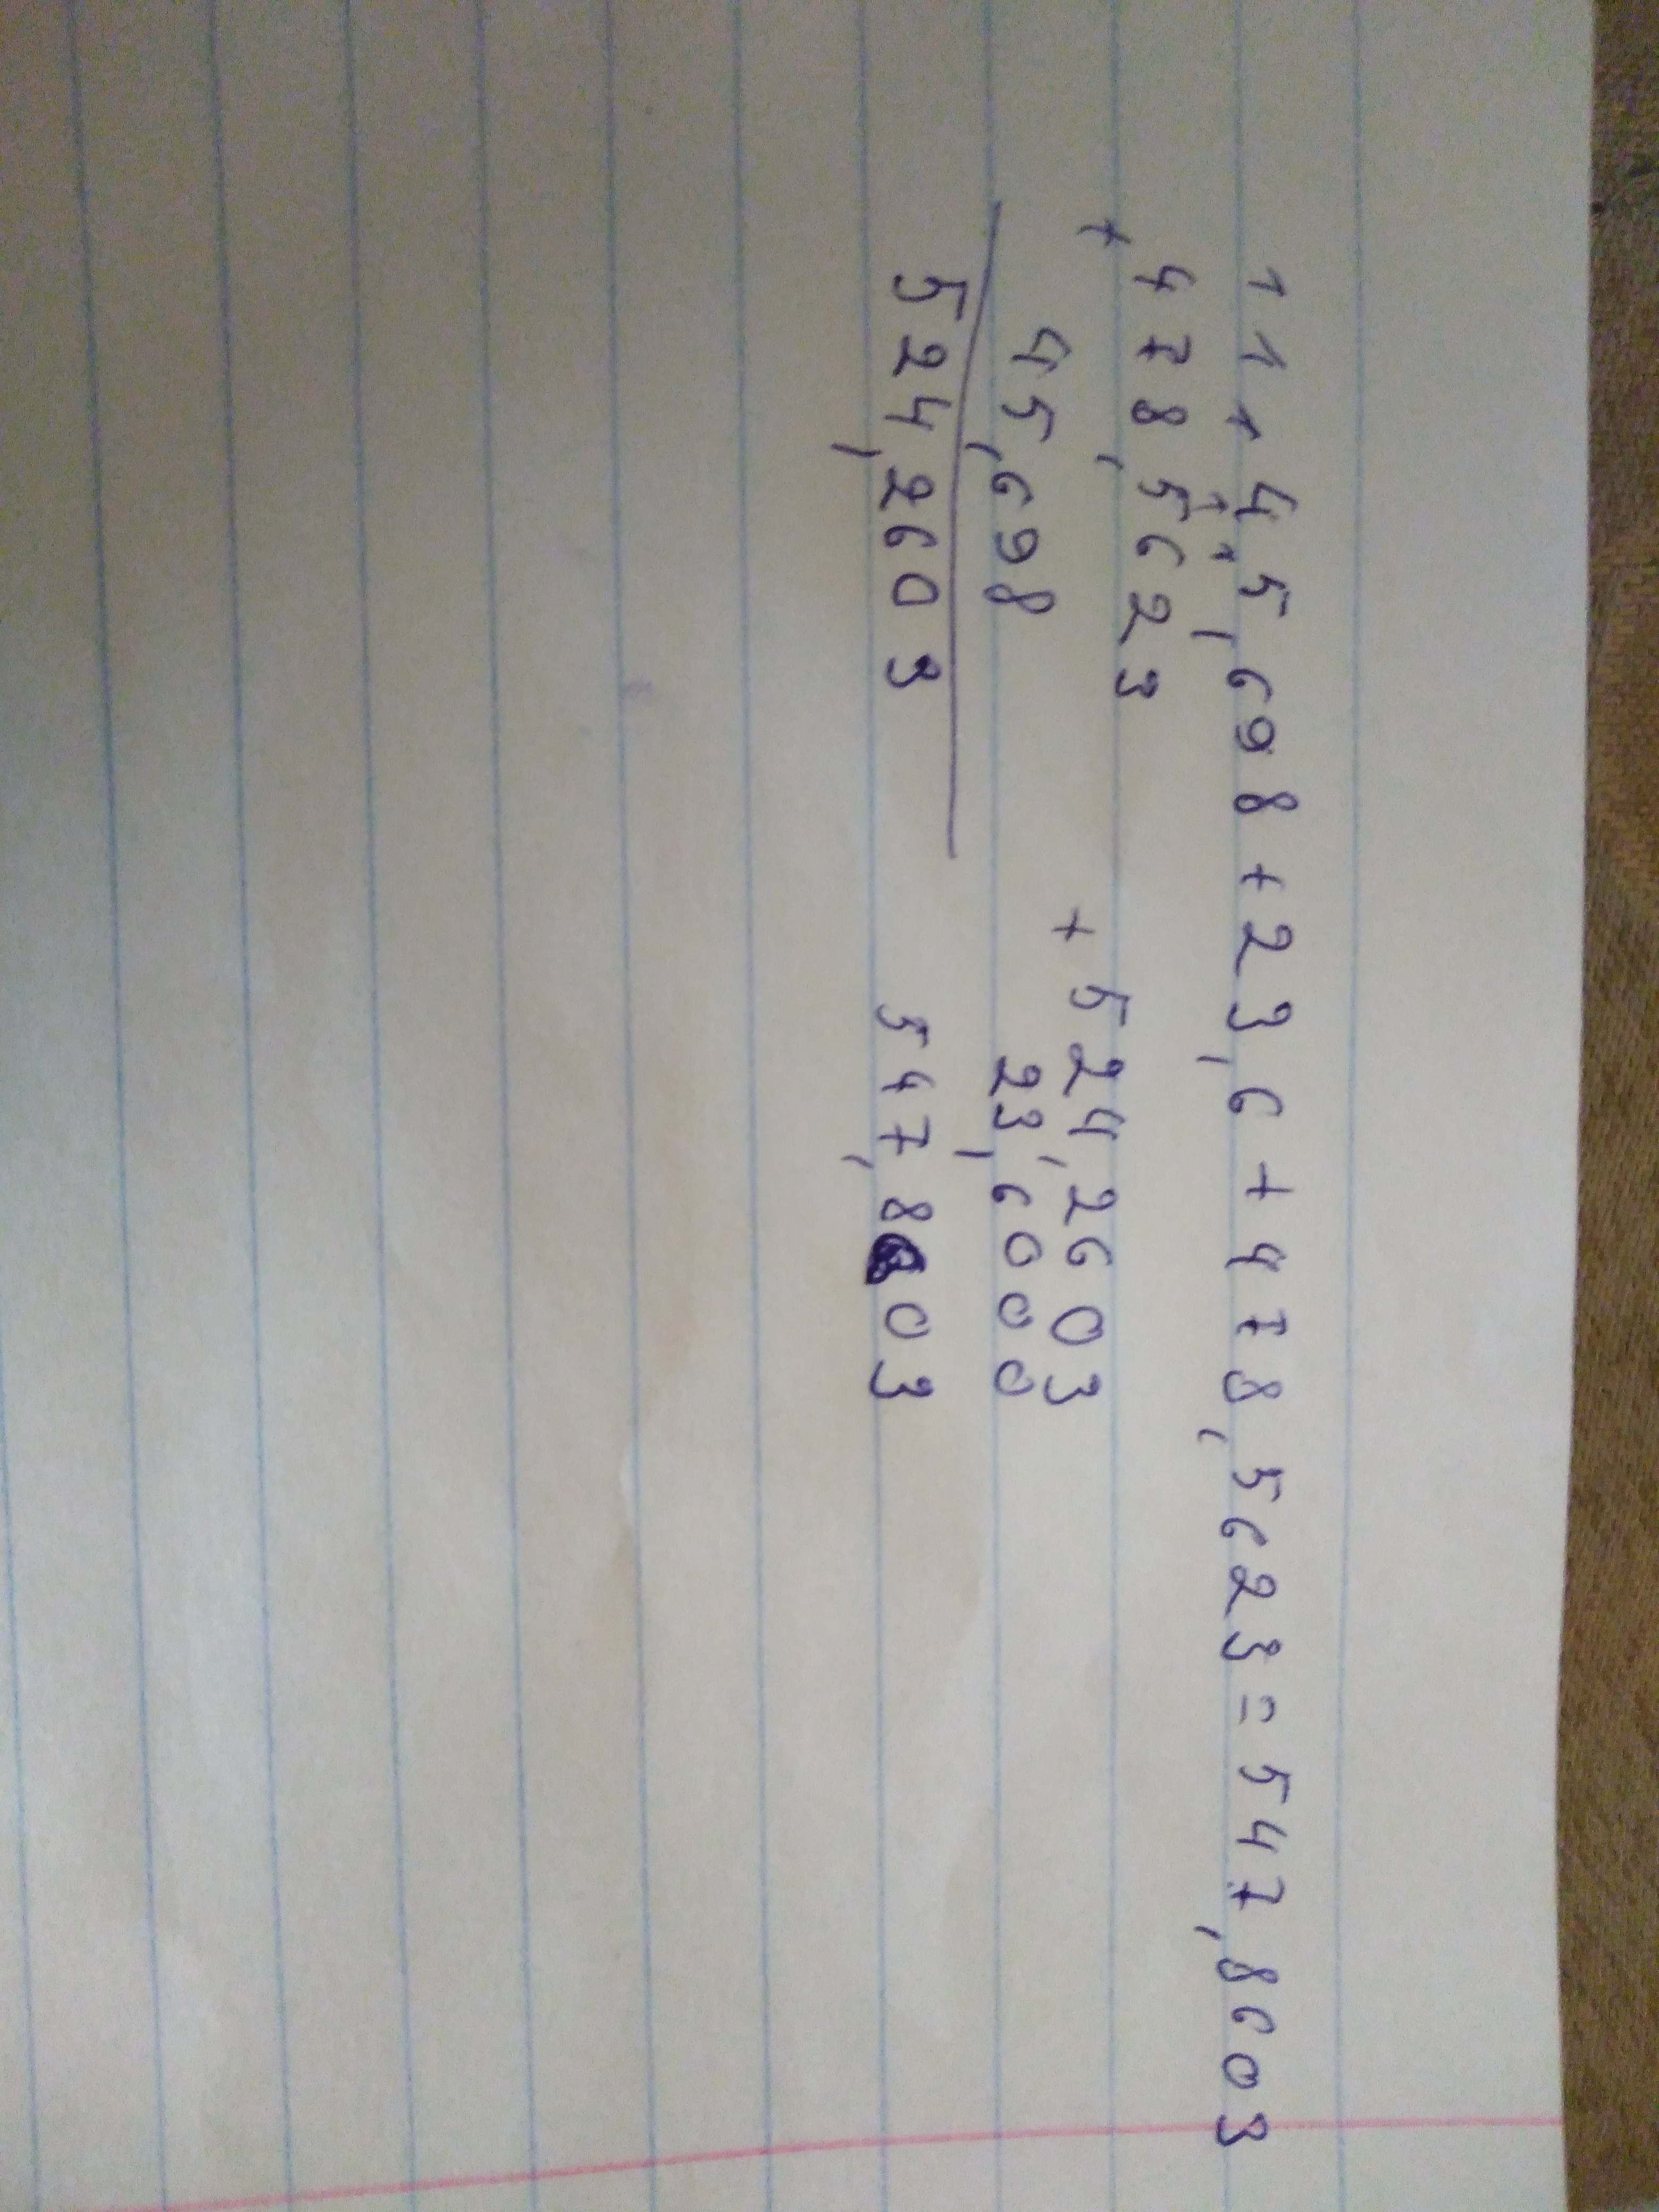 1 1 1 45,698+23,6+478,5623=547,8603
1 1
478,5623
+
45,698
524,2603
+ 524,2603
23,6000
547,8603